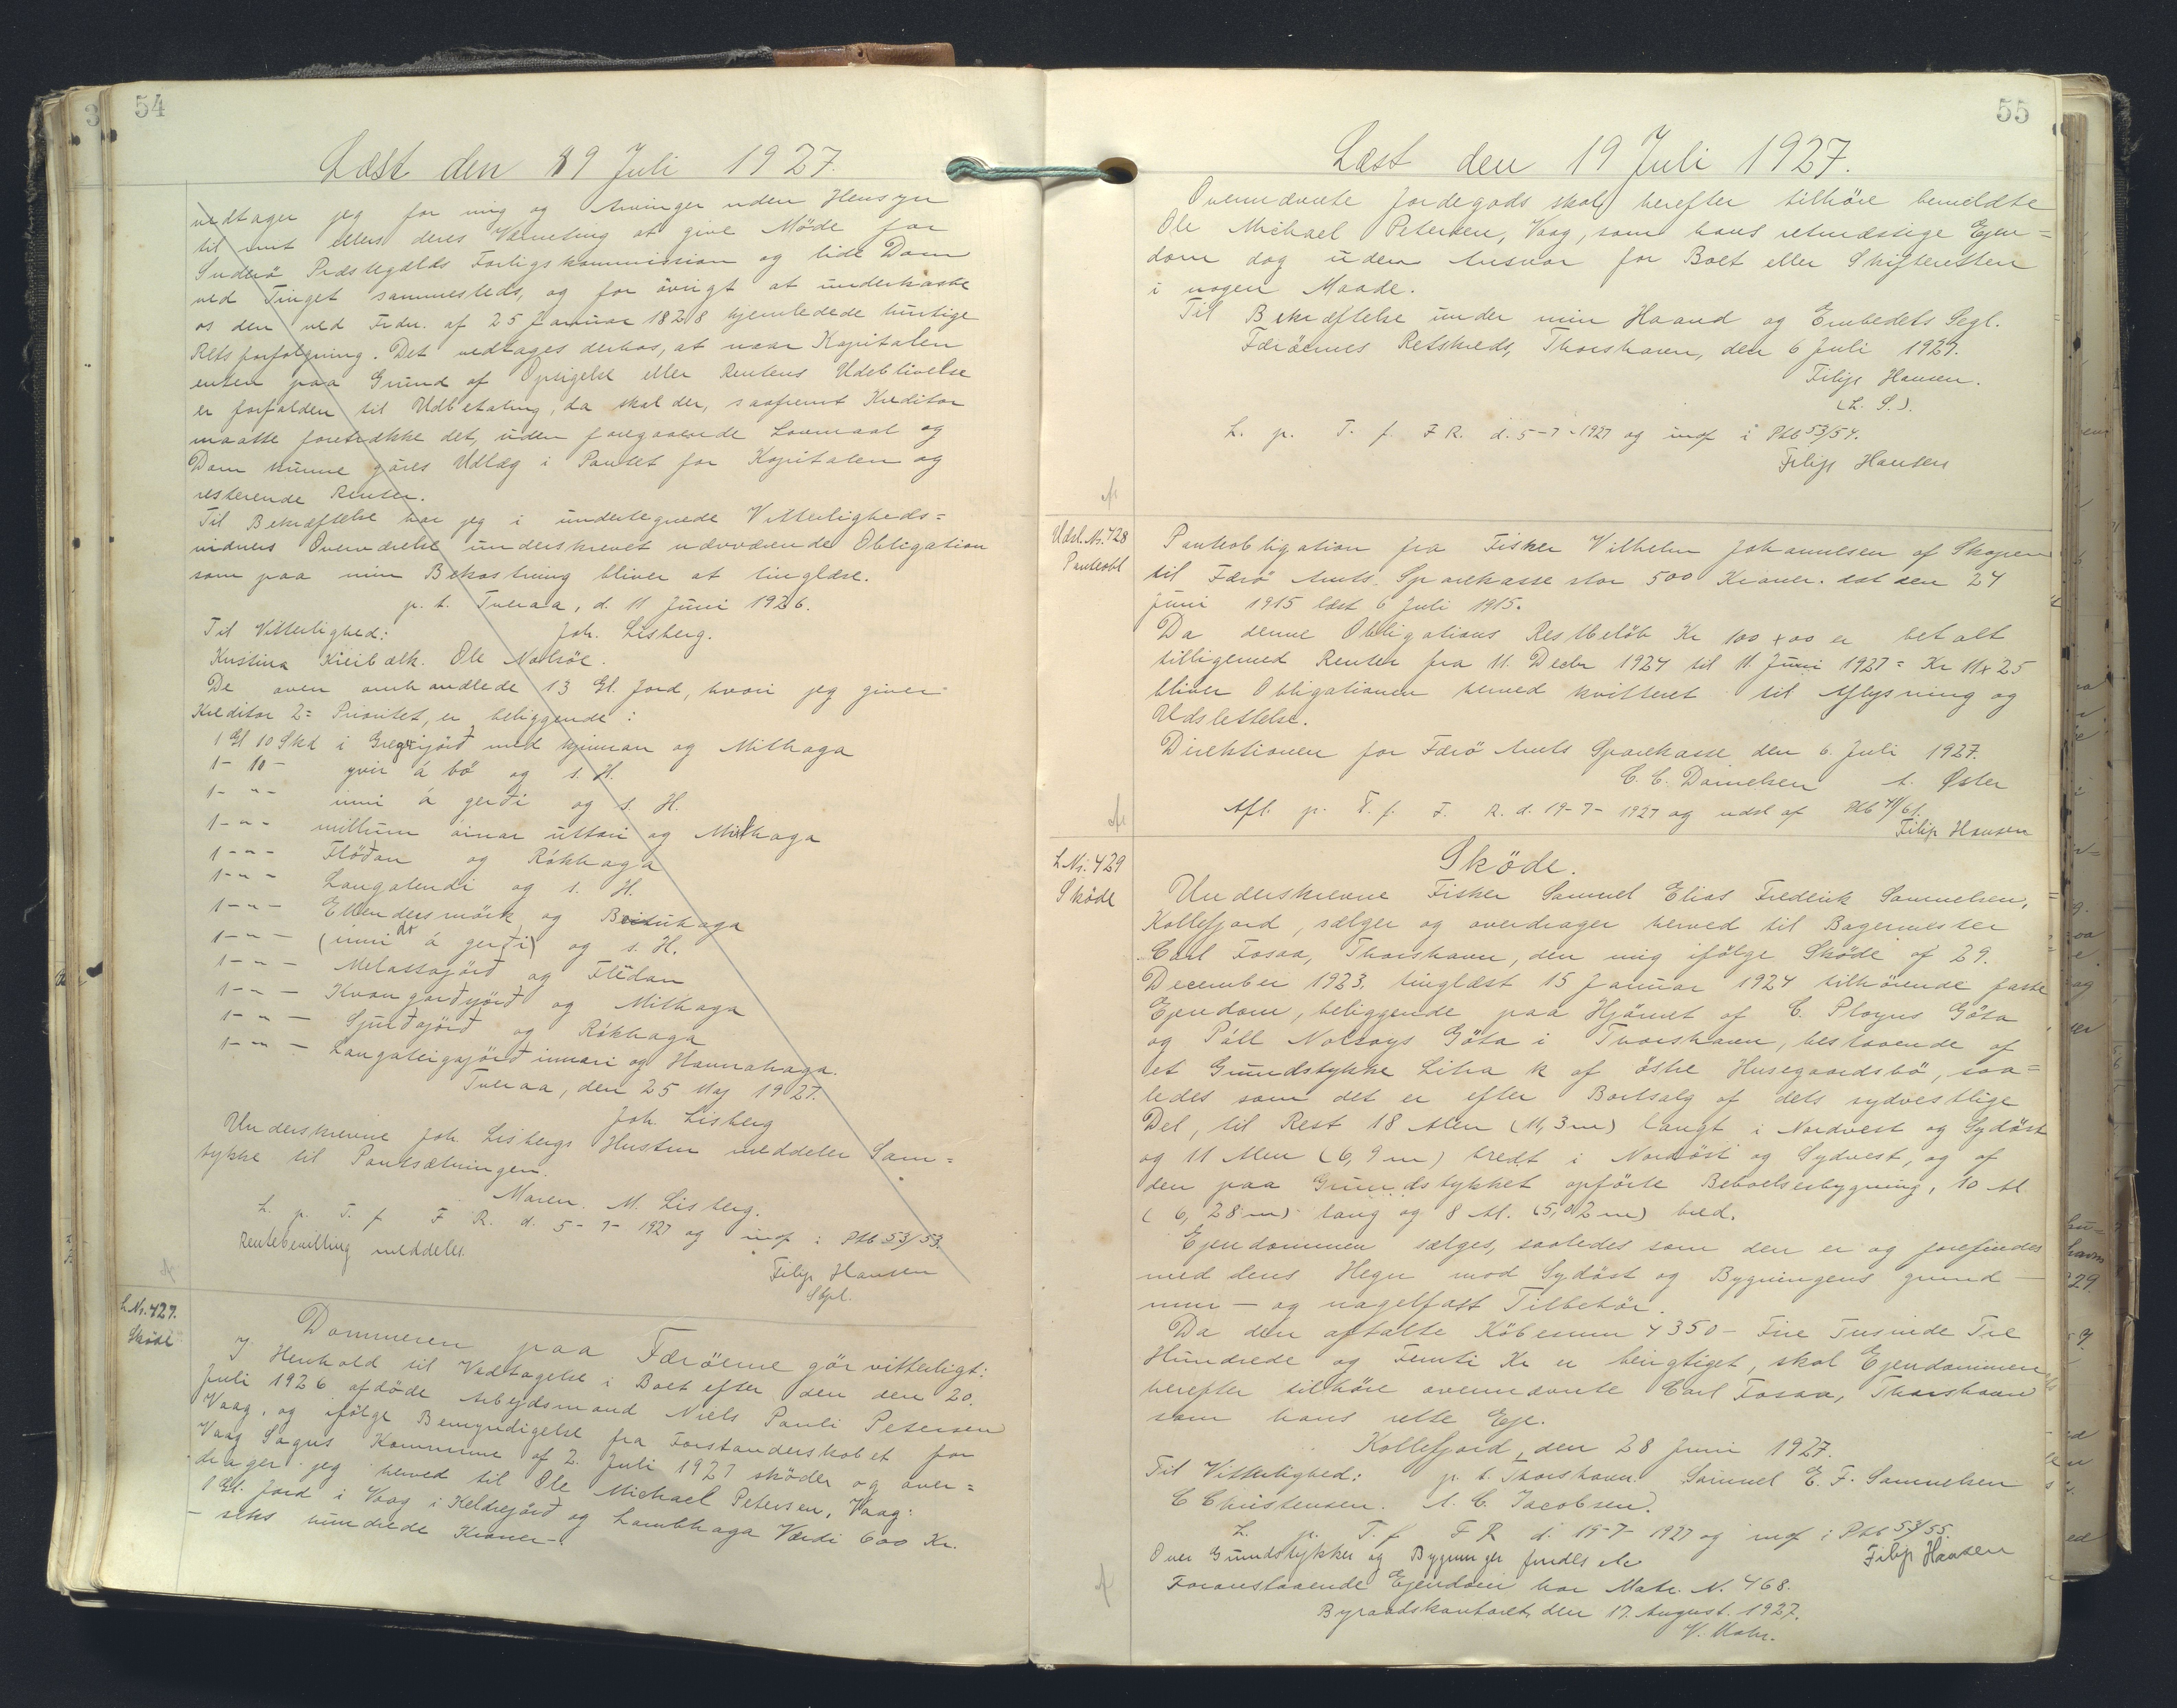 54
Læst den 19 Juli 1927.
vedtager jeg for mig og Arvinger uden Hensyn
til mit ellers deres Værneting at give Møde for
Suderö Præstegjælds Forligskommission og lide Dom
ved Tinget sammesteds, og for övrigt at underkaste
os den ved Frdn. af 25 Januar 1828 hjemledede hurtige
Retsforfølgning. Det vedtages derhos, at naar Kapitalen
enten paa Grund af Opsigelse eller Rentens Udeblivelse
er forfalden til Udbetaling, da skal der, saafremt Kreditor
maatte foretrække det, uden foregaaende Lovmaal og
Dom kunne göres Udlæg i Pantet for Kapitalen og
resterende Renter.
Til Bekræftelse har jeg i undertegnede Vitterligheds=
vidners Overværelse underskrevet nærværende Obligation
som paa min Bekostning bliver at tinglæse.
p. t. Tveraa, d. 11 Juni 1926.
Til Vitterlighed: Joh. Lisberg.
Kristina Ole Nolsöe.
De oven omhandlede 13 Gl. Jord, hvori jeg giver
Kreditor 2= Prioritet, er beliggende:
1 Gl 10 Skd i Gregorijörð med kjinnan og Mithaga
1- 10 - yvir á bö og s. H.
1- " - inni á gerði og s. H.
1- " - millum áinar uttari og Mithaga
1- " - Flöðan og Rókhaga
1- " - Langalendi og s. H.
1- " - Ellendersmörk og Breiduhaga
1- " - (inni á gerði) og s. H.
1- " - Melassajörð og Flüdan
1- " - Kvangarðsjörð og Mithaga
1- " - Sjurðajörð og Rókhaga
1- " - Langateigajörð innari og Havnahaga.
Tveraa, den 25 Maj 1927.
Joh. Lisberg
Underskrevne Joh. Lisbergs Hustru meddeler Sam=
tykke til Pantsætningen.
Maren. M. Lisberg.
L. p. T. f. F R. d. 5-7-1927 og indf i Ptb 53/53.
Rentebevilling meddeles.
Filip Hansen
L Nr. 427.
Sköde
Dommeren paa Færöerne gör vitterligt:
I Henhold til Vedtagelse i Boet efter den den 20.
Juli 1926 afdöde Arbejdsmand Niels Pauli Petersen
Vaag, og ifölge Bemyndigelse fra Forstanderskabet for
Vaag Sogns Kommune af 2. Juli 1927 sköder og over=
drager jeg herved til Ole Michael Petersen, Vaag:
1 Gl. Jord i Vaag i Keldrejörð og Lambhaga Værdi 600 Kr.
- seks hundrede Kroner -.
55
Læst den 19 Juli 1927.
Ovennævnte Jordegods skal herefter tilhöre bemeldte
Ole Michael Petersen, Vaag, som hans retmæssige Ejen=
dom dog uden Ansvar for Boet eller Skifteretten
i nogen Maade.
Til Bekræftelse under min Haand og Embedets Segl.
Færöernes Retskreds, Thorshavn, den 6 Juli 1927.
Filip Hansen.
(L. S.).
L. p. T. f. F R. d. 5-7-1927 og indf i Ptb 53/54.
Filip Hansen
Udsl. Nr. 428
Panteobl
Panteobligation fra Fisker Vilhelm Johannesen af Skopen
til Færö Amts Sparekasse stor 500 Kroner. dat den 24
Juni 1915 læst 6 Juli 1915.
Da denne Obligations Restbelöb Kr 100 x 00 er betalt
tilligemed Renter fra 11. Decbr 1924 til 11. Juni 1927 = Kr 11 x 25
bliver Obligationen herved kvitteret til Aflysning og
Udslettelse.
Direktionen for Færö Amts Sparekasse den 6. Juli 1927.
C. C. Danielsen A. Øster
Afl. p. T. f. F. R. d. 19-7-1927 og udsl af Ptb 41/61.
Filip Hansen
L Nr. 429
Sköde
Sköde.
Underskrevne Fisker Samuel Elias Frederik Samuelsen,
Kollefjord, sælger og overdrager herved til Bagermester
Carl Fossaa, Thorshavn, den mig ifölge Sköde af 29.
December 1923, tinglæst 15 Januar 1924 tilhörende faste
Ejendom, beliggende paa Hjörnet af C. Ployens Göta
og Páll Nolsoys Göta i Thorshavn, bestaaende af
et Grundstykke Litra k af östre Husegaardsbö, saa=
ledes som det er efter Bortsalg af dets sydvestlige
Del, til Rest 18 Alen (11,3 m) langt i Nordvest og Sydöst
og 11 Alen (6,9 m) bredt i Nordöst og Sydvest, og af
den paa Grundstykket opförte Beboelsesbygning, 10 Al.
(6,28 m) lang og 8 Al. (5,02 m) bred.
Ejendommen sælges, saaledes som den er og forefindes
med dens Hegn mod Sydöst og Bygningens grund -
mur - og nagelfast Tilbehör.
Da den aftalte Købesum 4350 - Fire Tusinde Tre
Hundrede og Femti Kr er berigtiget, skal Ejendommen
herefter tilhöre ovennævnte Carl Fossaa, Thorshavn
som hans rette Eje.
Kollefjord, den 28 Juni 1927.
Til Vitterlighed: p. t. Thorshavn. Samuel E. F. Samuelsen
C Christensen. A. C. Jacobsen.
L. p. T. f F R d. 19-7-1927 og indf i Ptb 53/55.
Over Grundstykker og Bygninger findes
Filip Hansen
Foranstaaende Ejendom har Matr. N. 468.
Byraadskontoret, den 17. August. 1927.